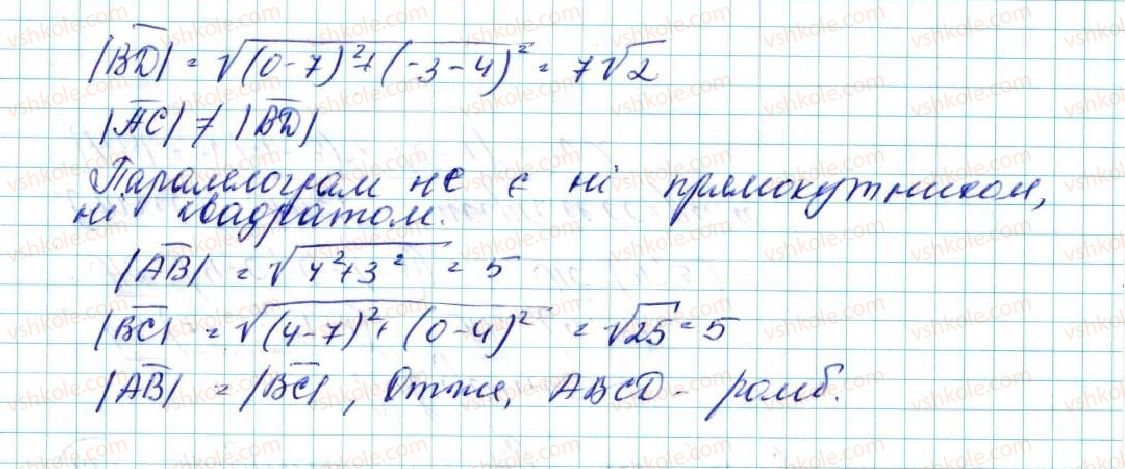 |BD| = √(0-7)² + (-3-4)² = 7√2
|AC| ≠ |BD|
Паралелограм не є ні прямокутником,
ні квадратом.
|AB| = √4²+3² = 5
|BC| = √(4-7)² + (0-4)² = √25 = 5
|AB| = |BC|, Отже, ABCD - ромб.